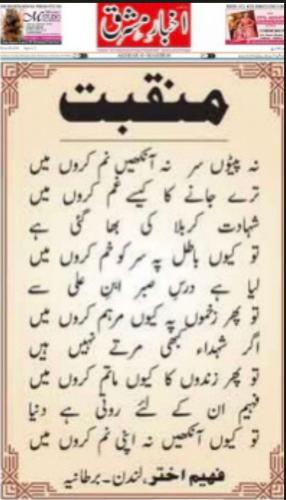 اخبار مشرق
منقبت
نہ پیٹوں سر نہ آنکھیں نم کروں میں
ترے جانے کا کیسے غم کروں میں
شہادت کربلا کی بھا گئی ہے
تو کیوں باطل پہ سر کو خم کروں میں
لیا ہے درسِ صبر ابنِ علی سے
تو پھر زخموں پہ کیوں مرہم کروں میں
اگر شہداء کبھی مرتے نہیں ہیں
تو پھر زندوں کا کیوں ماتم کروں میں
فہیم ان کے لئے روتی ہے دنیا
تو کیوں آنکھیں نہ اپنی نم کروں میں
فہیم اختر، لندن۔ برطانیہ